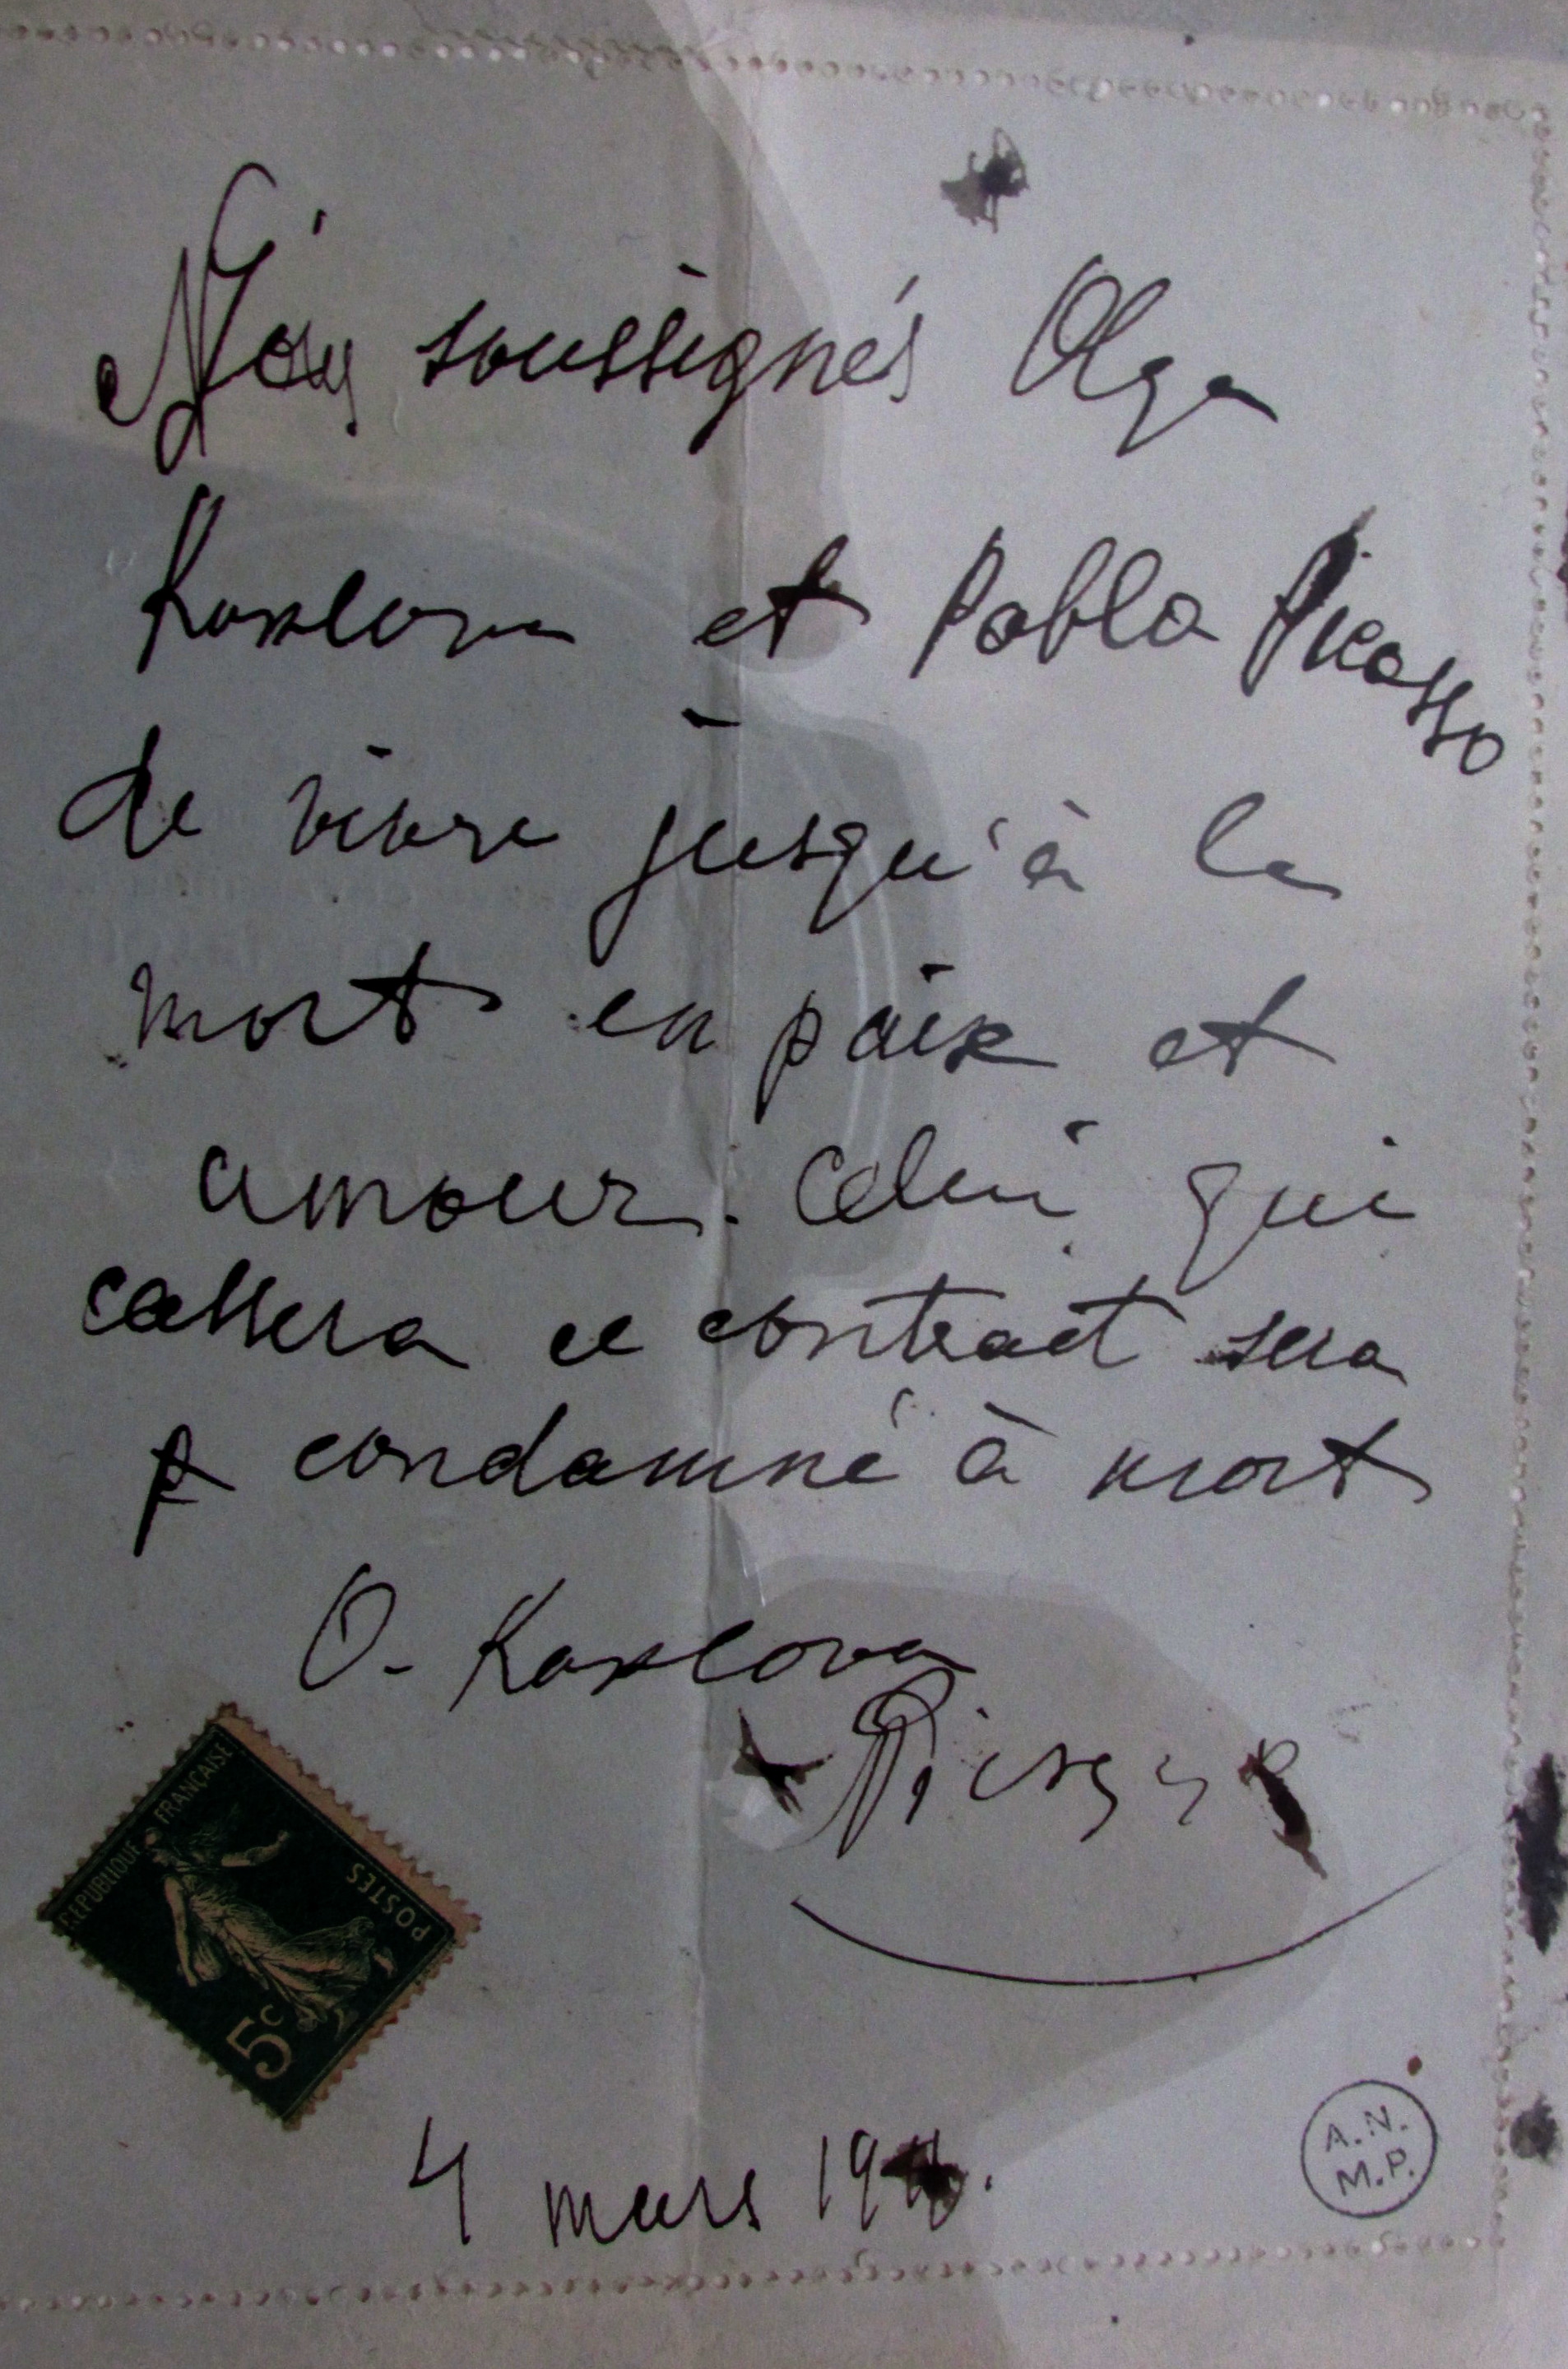 Nous soussignés Olga
Koxlova et Pablo Picasso
de vivre jusqu'à la
mort en paix et
amour. Celui qui
cassera ce contract sera
condamné à mort
O. Koxlova
Picasso
REPUBLIQUE FRANÇAISE
POSTES
5c
4 mars
A.N.
M.P.